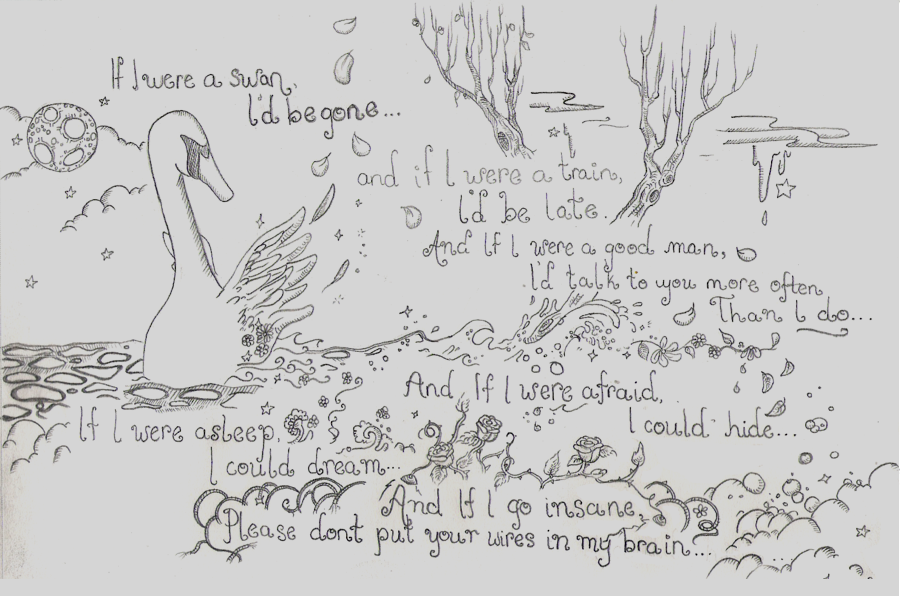 If I were a swan,
I'd be gone...
and if I were a train,
I'd be late.
And If I were a good man,
I'd talk to you more often
Than I do...
And If I were afraid,
I could hide...
If I were asleep,
I could dream...
And If I go insane,
Please dont put your wires in my brain...